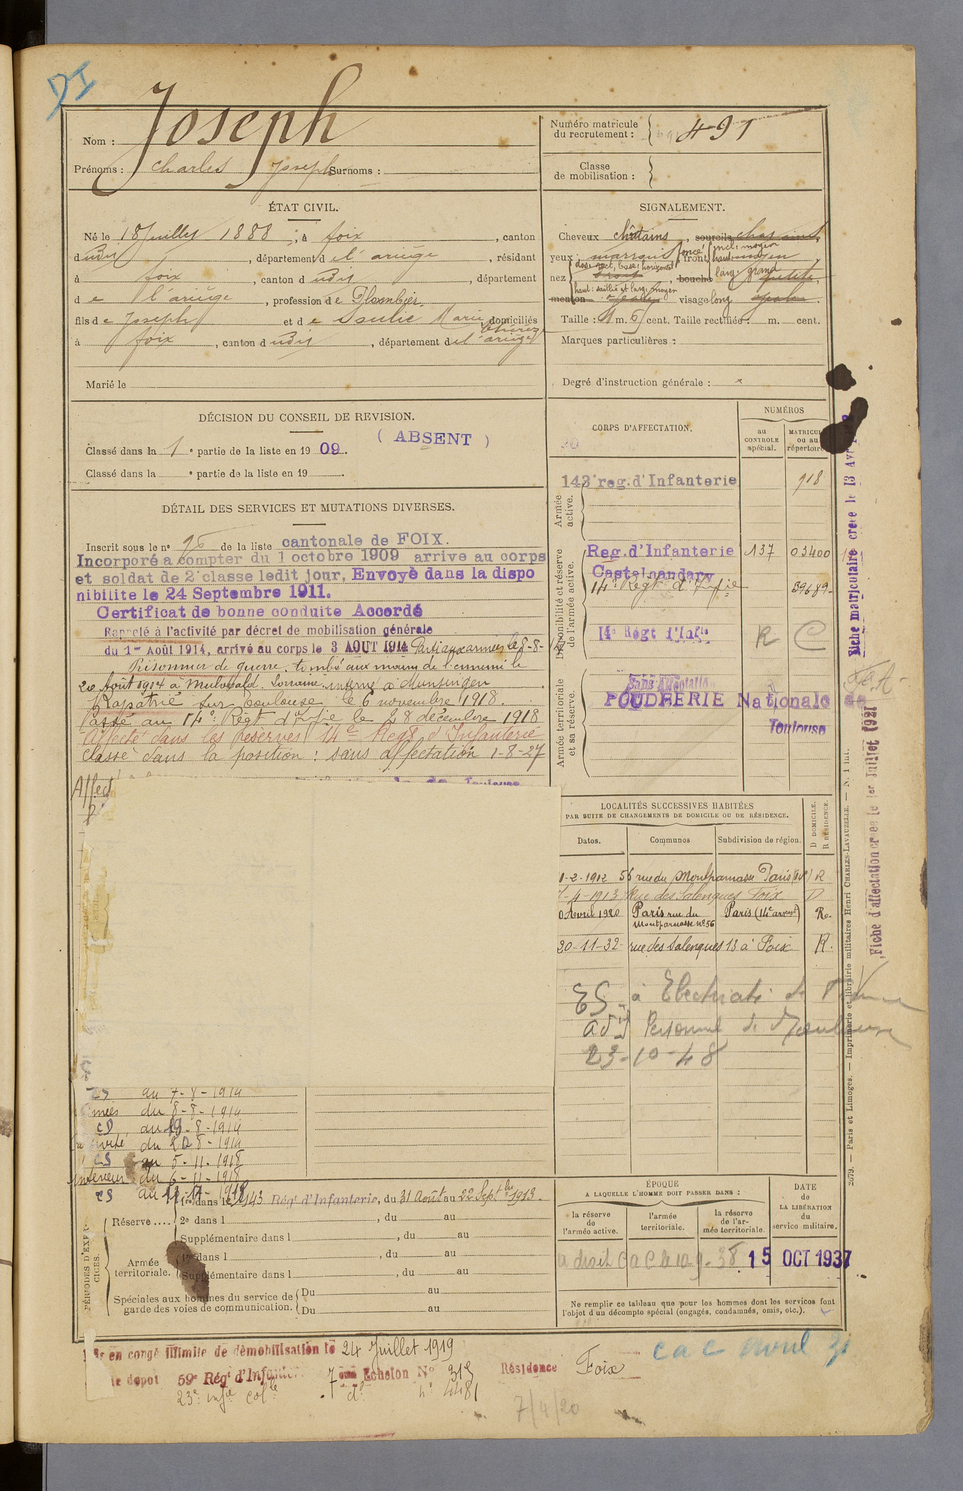 DI
Nom : Joseph
Prénoms : Charles Joseph Surnoms :
Numéro matricule du recrutement : 491
Classe de mobilisation :
ÉTAT CIVIL.
Né le 18 Juillet 1888, à foix, canton
dudit, département de l'ariège, résidant
à foix, canton dudit, département
de l'ariège, profession de Plombier
fils de Joseph et de Marie domiciliés
à foix, canton dudit, département de l'ariège
Marié le
SIGNALEMENT.
Cheveux châtains, sourcils
yeux marrons foncé, front
nez dos: rect, base: horizontal, bouche
menton visage long
Taille : 1 m. cent. Taille rectifiée : m. cent.
Marques particulières :
Degré d'instruction générale :
DÉCISION DU CONSEIL DE REVISION.
( ABSENT )
Classé dans la 1e partie de la liste en 1909.
Classé dans la e partie de la liste en 19
DÉTAIL DES SERVICES ET MUTATIONS DIVERSES.
Inscrit sous le n° de la liste cantonale de FOIX.
Incorporé à compter du 1 octobre 1909 arrive au corps
et soldat de 2e classe ledit jour, Envoyé dans la dispo
nibilite le 24 Septembre 1911.
Certificat de bonne conduite Accordé
Rappelé à l'activité par décret de mobilisation générale
du 1er Août 1914, arrivé au corps le 3 AOUT 1914 Parti aux armées le 8-8-
Prisonnier de guerre, tombé aux mains de l'ennemi le
20 Août 1914 à Lorraine interné à Munsingen
Rapatrié sur Toulouse le 6 novembre 1918.
Passé au 14e Régt d'Infie le 18 décembre 1918
Affecté dans les réserves 14e Regt d'Infanterie
Classé dans la position : sans affectation 1-8-27
Affect
CORPS D'AFFECTATION.
NUMÉROS
au CONTROLE spécial.
MATRICULE ou au répertoire
Armée active.
143e reg. d'Infanterie 918
Disponibilité et réserve de l'armée active.
Reg. d'Infanterie 137 03400
Castelnaudary
14e Regt d'Infie 39689
14e Régt d'Infie R C
Armée territoriale et sa réserve.
Sans affectation
POUDRERIE Nationale de
Toulouse
Fiche matriculaire créée le 13 Avr
Fiche d'affectation créée le 1er Juillet 1921
LOCALITÉS SUCCESSIVES HABITÉES
PAR SUITE DE CHANGEMENTS DE DOMICILE OU DE RÉSIDENCE.
Dates. Communes Subdivision de région. D DOMICILE. R RÉSIDENCE.
-2-1912 56 rue du Montparnasse Paris R
-4-1913 Rue des Salenques Foix D
Avril 1920 Paris rue du Montparnasse n°56 Paris (14e arrond) R.
30-11-32 rue des Salenques 13 à Foix R.
ES à Electricité de
Personnel de Toulouse
23-10-48
CS au 7-8-1914
mées du 8-8-1914
CD du 19-8-1914
du 20-8-1914
CS au 5-11-1918
intérieur du 6-11-1918
CS
PÉRIODES D'EXERCICES.
Réserve.... 1re dans le 143 Rég. d'Infanterie, du 31 Août au 22 Septbre 1913.
2e dans l , du au
Supplémentaire dans l , du au
Armée territoriale. 1re dans l , du au
Supplémentaire dans l , du au
Spéciales aux hommes du service de garde des voies de communication. Du au
Du au
ÉPOQUE
A LAQUELLE L'HOMME DOIT PASSER DANS :
la réserve de l'armée active. l'armée territoriale. la réserve de l'armée territoriale.
DATE DE LA LIBÉRATION du service militaire.
15 OCT 1937
Ne remplir ce tableau que pour les hommes dont les services font
l'objet d'un décompte spécial (engagés, condamnés, omis, etc.).
2079. — Paris et Limoges. — Imprimerie et librairie militaires Henri CHARLES-LAVAUZELLE. — N. 1 bis.
en congé illimité de démobilisation le 24 Juillet 1919
le depot 59e Régt d'Infanterie 7eme Echelon N° 315 Résidence Foix
23e infie colle 7e d° n° 4481
cac avril 31
7/4/20